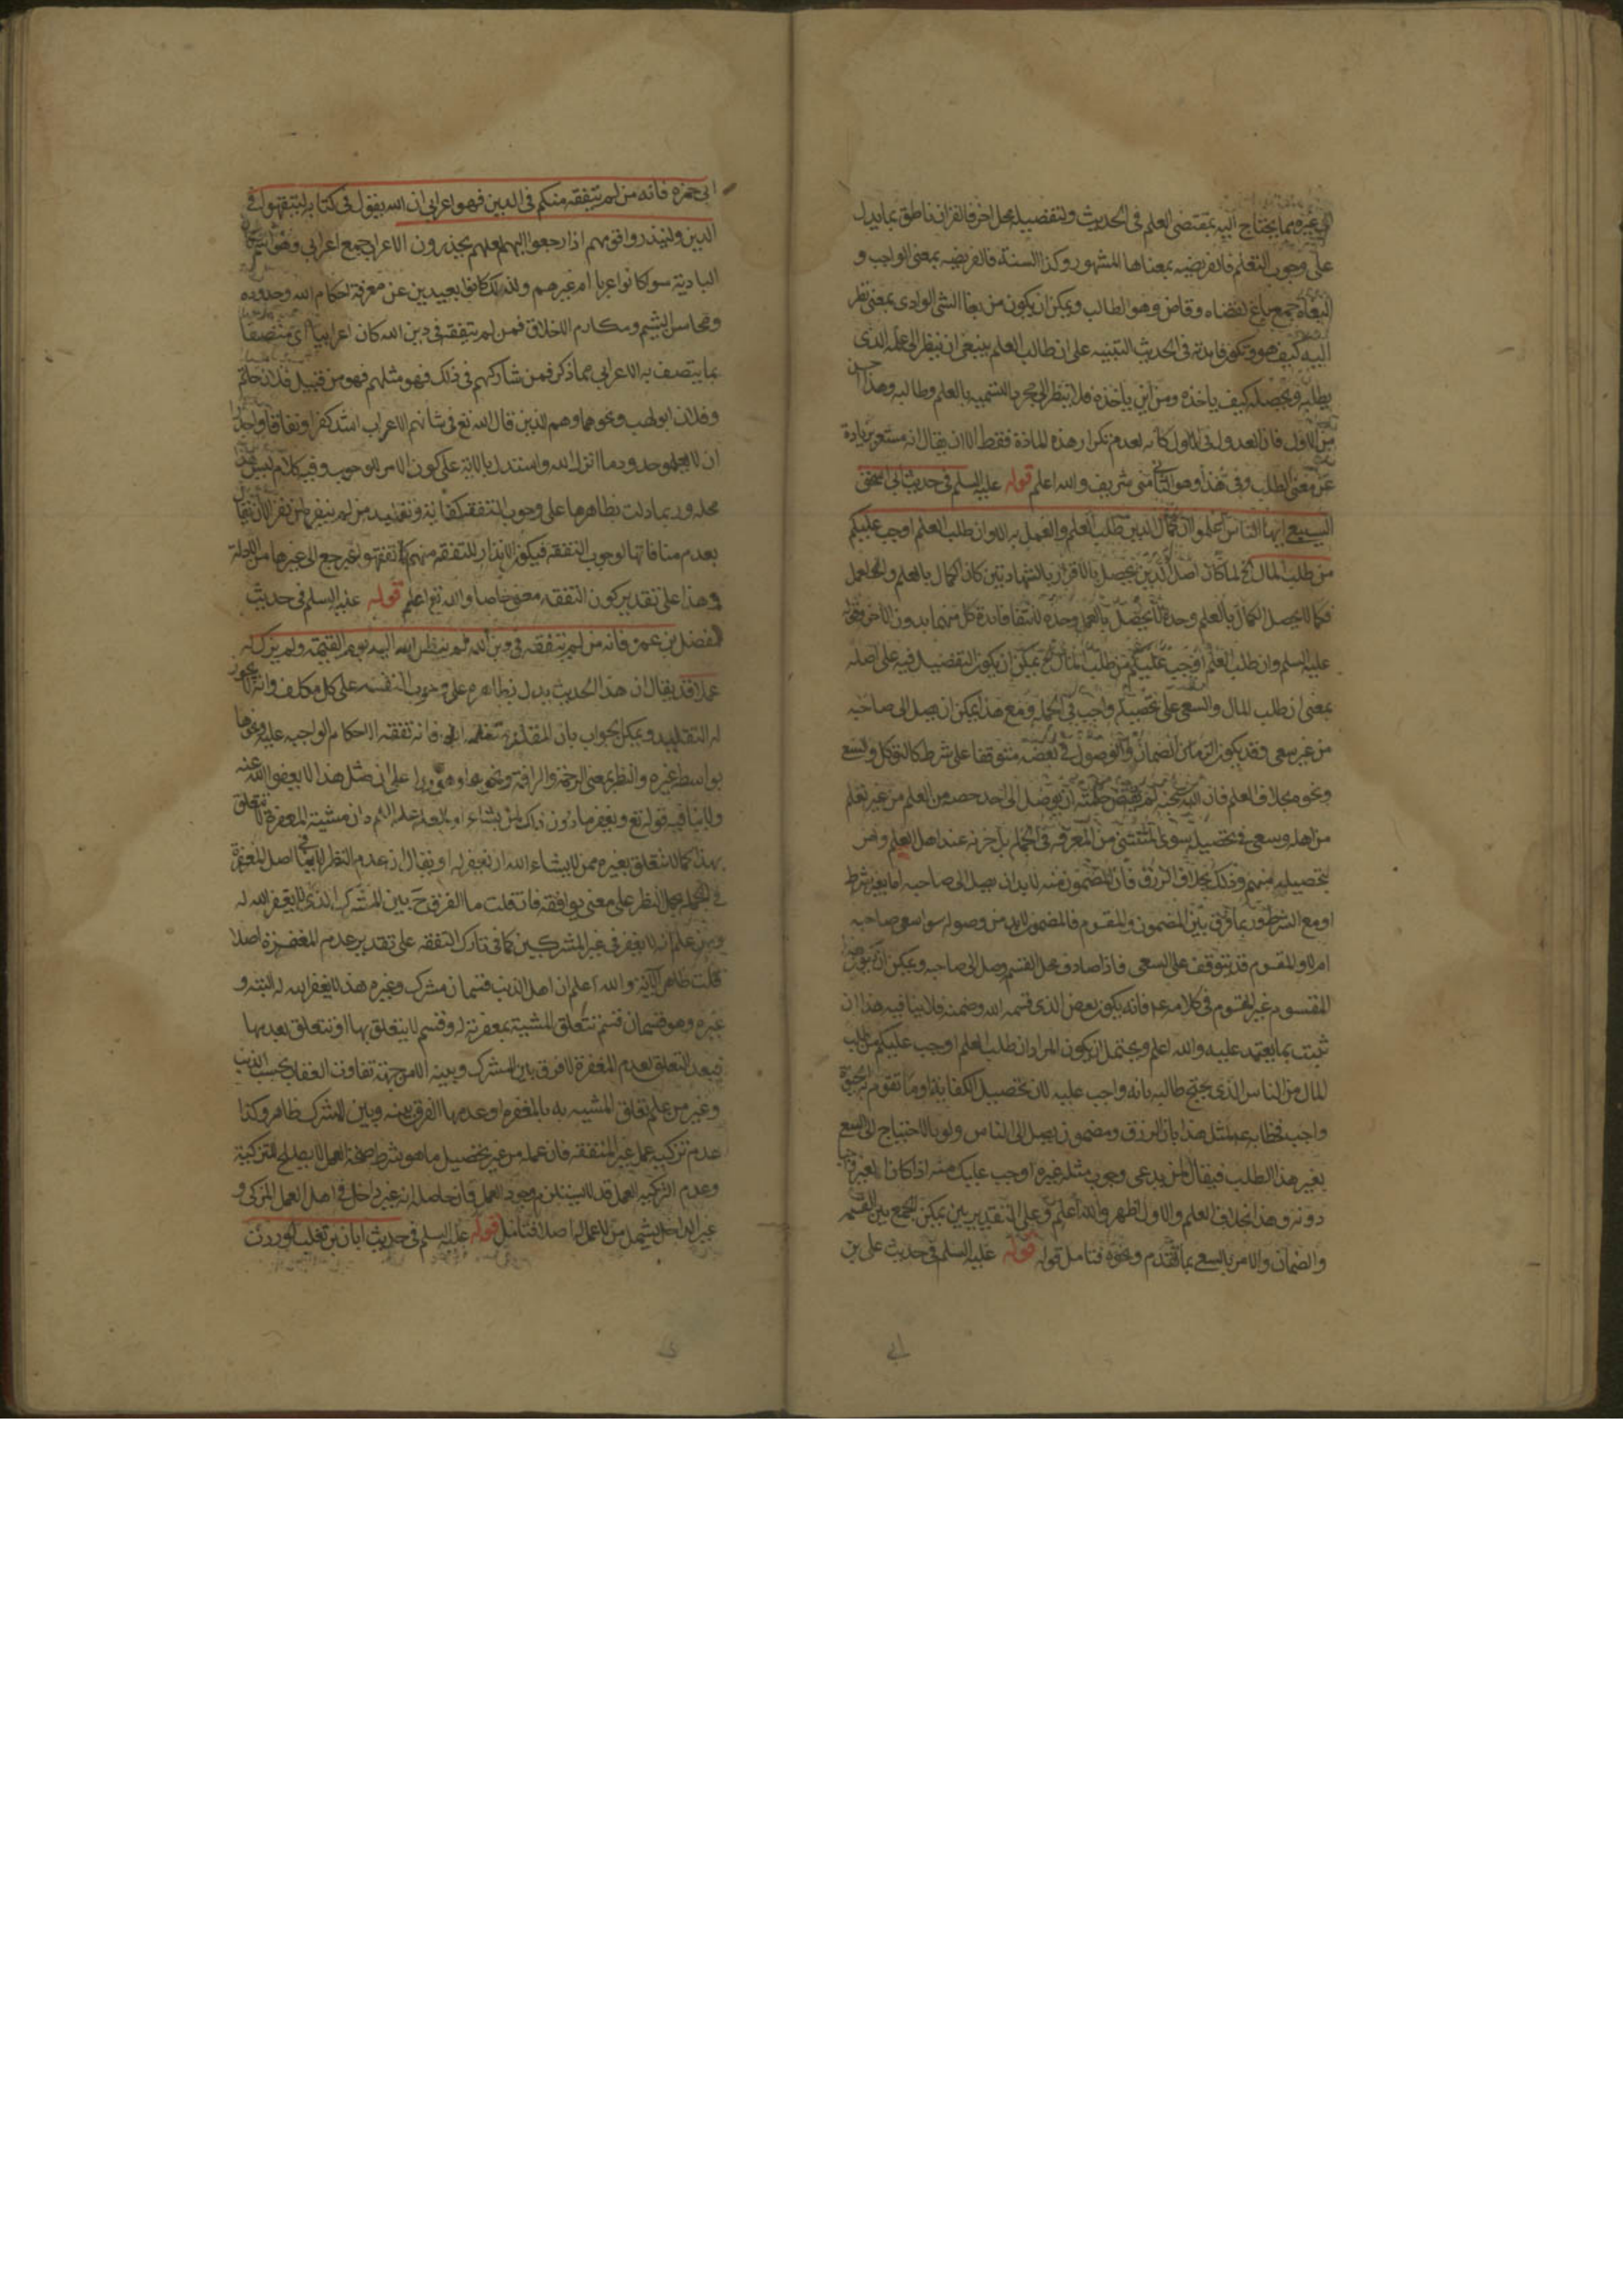 الى غيره مما يحتاج اليه بمقتضى العلم فى الحديث ولتفصيله محل اخر فالقران ناطق بما يدل
على وجوب التعلم فالفريضه بمعناها المشهور وكذا السنة فالفريضه بمعنى الواجب و
البغاة جمع باغ كقضاه وقاض وهو الطالب ويمكن ان يكون من بغا الشى الوادى بمعنى نظر
اليه كيف هو وتكون فايدته فى الحديث التنبيه على ان طالب العلم ينبغى ان ينظر الى علمه الذى
يطلبه ويحصله كيف ياخذه ومن اين ياخذه فلا ينظر الى مجرد التسميه بالعلم وطالبه وهذا احسن
من الاول فان العدول فى الاول كانه لعدم تكرار هذه المادة فقط الا ان يقال انه مشعر بزيادة
عن معنى الطلب وفى هذا وهو الثانى معنى شريف والله اعلم قوله عليه السلم فى حديث ابى اسحق
السبيعى ايها الناس اعلموا ان كمال الدين طلب العلم والعمل به الا وان طلب العلم اوجب عليكم
من طلب المال الخ لما كان اصل الدين يحصل بالاقرار بالشهادتين كان الكمال بالعلم والعمل
فكما لا يحصل الكمال بالعلم وحده لا يحصل بالعمل وحده لانتفا فائدة كل منهما بدون الاخر وقوله
عليه السلم وان طلب العلم اوجب عليكم من طلب المال الخ يمكن ان يكون التفضيل فيه على اصله
بمعنى ان طلب المال والسعى على تحصيله واجب فى الجمله ومع هذا يمكن ان يصل الى صاحبه
من غير سعى وقد يكون الزمان الضمان والوصول فى بعضه متوقفا على شرط كالتوكل والسعى
ونحوه بخلاف العلم فان الله سبحنه لم تقتض حكمته ان يوصل الى احد حصه من العلم من غير تعلم
من اهله وسعى فى تحصيله سوى المستثنى من المعرفه فى الجمله بل خزنه عند اهل العلم وامر
بتحصيله منهم وذلك بخلاف الرزق فان المضمون منه لا بد ان يصل الى صاحبه اما بغير شرط
او مع الشرط وربما فرق بين المضمون والمقسوم فالمضمون لا بد من وصوله سوا سعى صاحبه
ام لا والمقسوم قد يتوقف على السعى فاذا صادف محل القسم وصل الى صاحبه ويمكن ان يكون
المقسوم غير المقسوم فى كلامه ع فانه يكون بعض الذى قسمه الله وضمنه فلا ينافيه هذا ان
ثبت بما يعتمد عليه والله اعلم ويحتمل ان يكون المراد ان طلب العلم اوجب عليكم من طلب
المال من الناس الذى يحتج طالبه بانه واجب عليه لان تحصيل الكفاية او ما تقوم به
واجب فخطابه ع لمثل هذا بان الرزق ومضمون يصل الى الناس ولو بالاحتياج الى السعى
بغير هذا الطلب فيقال لمن يدعى وجوب مثله غيره اوجب عليك منه اذا كان الغير
دونه وهذا بخلاف العلم والاول اظهر والله اعلم وعلى التقديرين يمكن الجمع بين القسم
والضمان والامر بالسعى بما تقدم ونحوه فتامل قوله قوله عليه السلم فى حديث على بن
ابى حمزه فانه من لم يتفقه منكم فى الدين فهو اعرابى ان الله يقول فى كتابه ليتفقهوا فى
الدين ولينذروا قومهم اذا رجعوا اليهم لعلهم يحذرون الاعراب جمع اعرابى وهو
البادية سوا كانوا عربا ام غيرهم ولذلك كانوا بعيدين عن معرفة احكام الله وحدوده
ومحاسن الشيم ومكارم الاخلاق فمن لم يتفقه فى دين الله كان اعرابيا اى متصفا
بما يتصف به الاعرابى مما ذكر فمن شاركهم فى ذلك فهو مثلهم فهو من قبيل فلان حاتم
وفلان ابو لهب ونحوهما وهم الذين قال الله تع فى شانهم الاعراب اشد كفرا ونفاقا واجدر
ان لا يعلموا حدود ما انزل الله واستدل بالاية على كون الامر للوجوب وفيه كلام ليس
محله وربما دلت بظاهرها على وجوب التفقه كفاية وتقليد من لم ينفر لمن نفر الا ان يقال
بعدم منافاتها لوجوب التفقه فيكون الانذار للتفقه منهم كما تفقهوا غير جمع الى غيرها من الادلة
وهذا على تقدير كون التفقه معنى خاصا والله تع اعلم قوله عليه السلم فى حديث
المفضل بن عمر فانه من لم يتفقه فى دين الله لم ينظر الله اليه يوم القيمة ولم يزك له
عملا قد يقال ان هذا الحديث يدل بظاهره على وجوب التفقه على كل مكلف وانه لا يجوز
له التقليد ويمكن الجواب بان المقلد فانه تفقه الاحكام الواجبه عليه ونحوها
بواسطة غيره والنظر بمعنى الرحمة والرافة ونحوهما على ان مثل هذا لا يعفو الله عنه
ولا ينافيه قوله تع ويغفر ما دون ذلك لمن يشاء ان مشية المغفرة لا تتعلق
بهذا كما لا تتعلق بغيره ممن لا يشاء الله ان يغفر له او يقال ان عدم النظر لا ينافى اصل المغفرة
فى الجمله بحمل النظر على معنى يوافقه فان قلت ما الفرق ح بين المشرك الذى لا يغفر الله له
وبين علم انه لا يغفر فى غير المشركين كما فى تارك التفقه على تقدير عدم المغفرة اصلا
قلت ظاهر الاية والله اعلم ان اهل الذنب قسمان مشرك وغيره هذا لا يغفر الله له البتة و
غيره وهو قسمان قسم تتعلق المشية بمغفرته له وقسم لا يتعلق بها او تتعلق بعدمها
فبعد التعلق لعدم المغفرة لا فرق بين المشرك وبينه الا من جهة تفاوت العقاب بحسب الذنب
وغير من علم تعلق المشيه به بالمغفرة او عدمها الفرق بينه وبين المشرك ظاهر وكذا
عدم تزكيه عمل غير المتفقه فان عمله من غير تحصيل ما هو شرط صحة العمل لا يصلح للتزكية
وعدم التزكيه للعمل قد لا يستلزم وجود العمل فان حاصله انه غير داخل فى اهل العمل المزكى و
غير الداخل يشمل من لا عمل له اصلا فتامل قوله عليه السلم فى حديث ابان بن تغلب لوددت